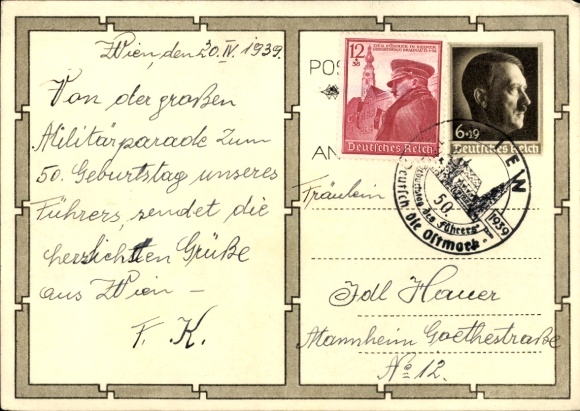 Wien, den 20. IV. 1939.
Von der großen
Militärparade zum
50. Geburtstag unseres
Führers, sendet die
herzlichsten Grüße
aus Wien —
F. K.
POS
12
38
Deutsches Reich
6+19
Deutsches Reich
AN
WIEN
50.
des Führers
1939
die Ostmark
Fräulein
Idl Hauer
Mannheim Goethestraße
No 12.